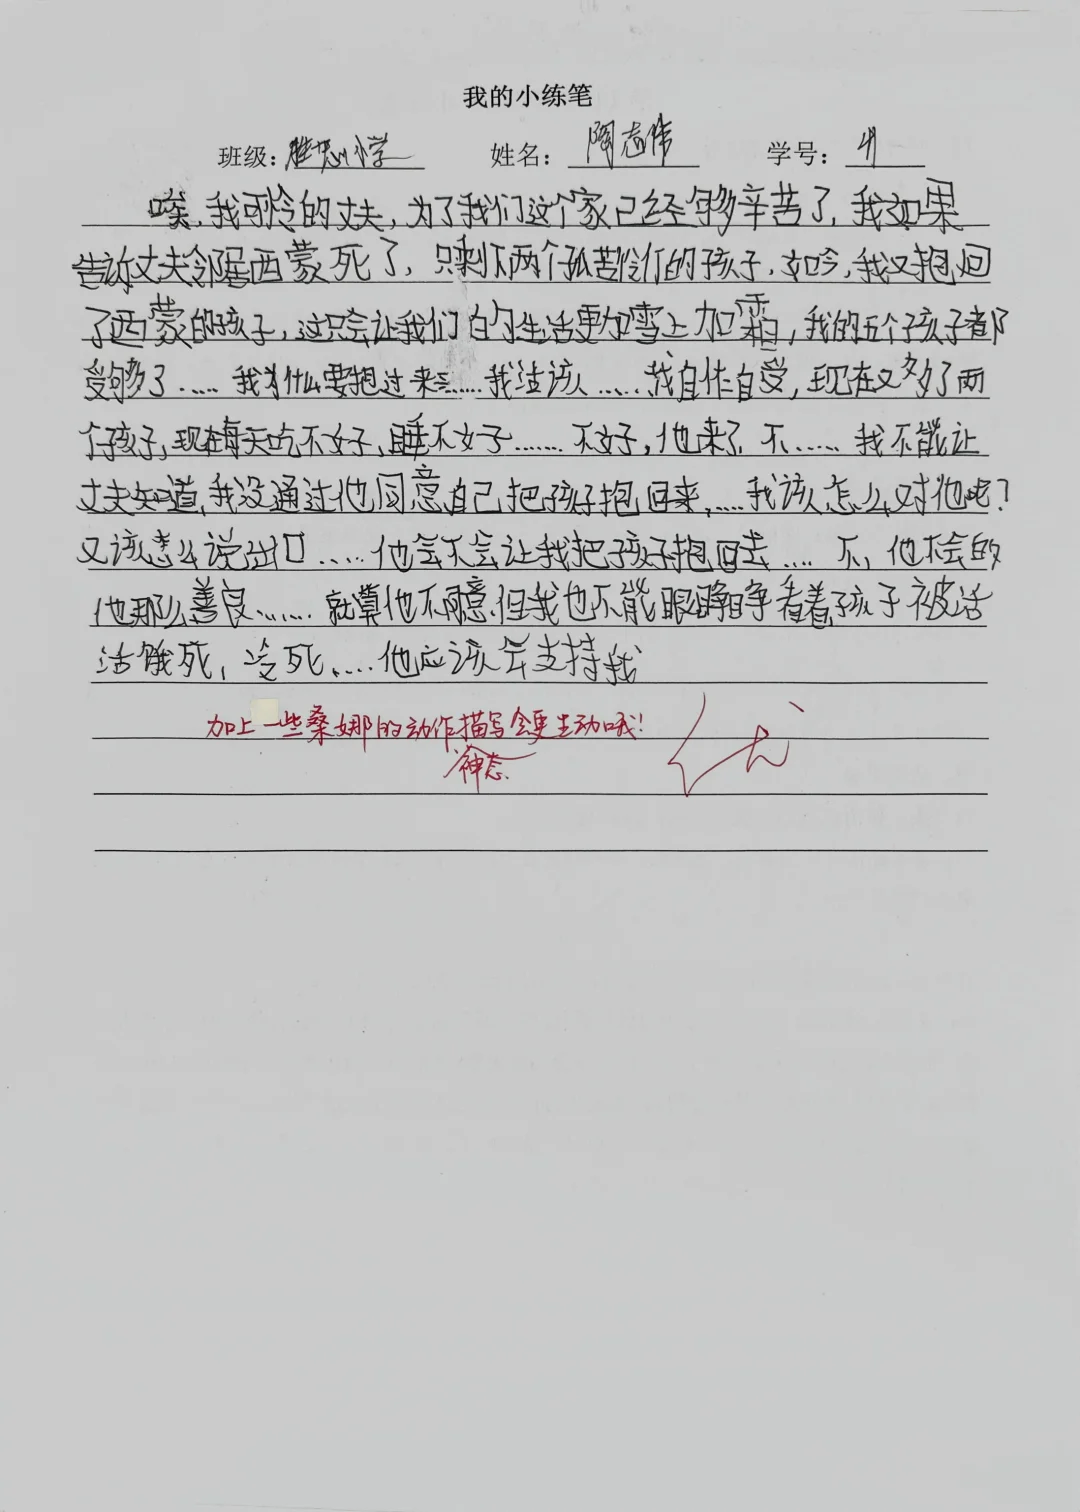 我的小练笔
班级: 小学 姓名: 陶志伟 学号:
唉,我可怜的丈夫,为了我们这个家已经够辛苦了,我如果
告诉丈夫邻居西蒙死了,只剩下两个孤苦怜仃的孩子,如今,我又抱回
了西蒙的孩子,这只会让我们的生活更加雪上加霜,我的五个孩子都
受够了……我为什么要抱过来……我活该……我自作自受,现在又多了两
个孩子,现在每天吃不好,睡不好……不好,他来了不……我不能让
丈夫知道,我没通过他同意自己把孩子抱回来,……我该怎么对他呢?
又该怎么说出口……他会不会让我把孩子抱回去……不,他不会的
他那么善良……就算他不同意,但我也不能眼睁睁看着孩子被活
活饿死,冷死……他应该会支持我
加上一些桑娜的动作描写会更生动哦!
神态
优